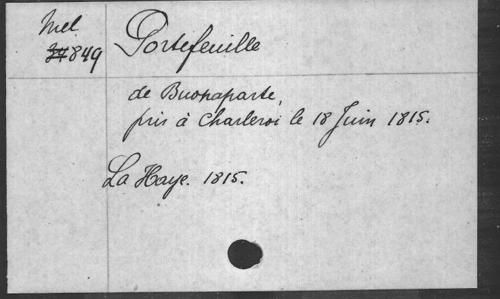 Mel
849
Portefeuille
de Buonaparte,
pris à Charleroi le 18 Juin 1815.
La Haye. 1815.